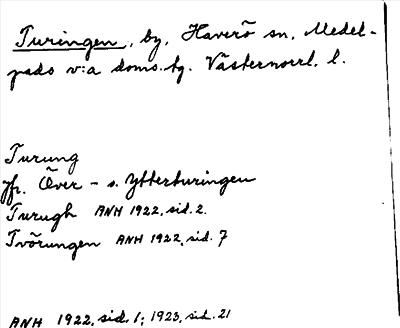 Turingen, by, Haverö sn, Medel-
pads v:a doms.tg. Västernorrl. l.
Turung
Jfr. Över- o. Ytterturingen
Turugh ANH 1922, sid. 2.
Tvörungen ANH 1922, sid. 7
ANH 1922, sid. 1; 1923, sid. 21